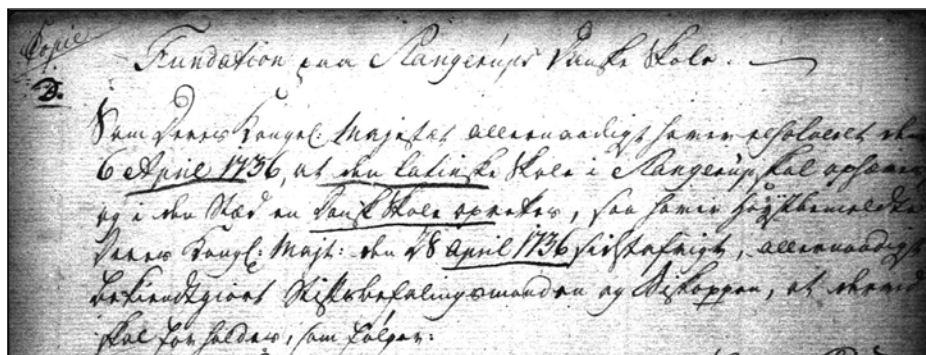 Copie
D.
Fundation paa Slangerups Danske Skole.
Som Deres Kongel: Majestæt allernaadigst haver resolveret den
6 April 1736, at den latinske Skole i Slangerup skal ophæves,
og i den Stæd en Dansk Skole oprettes, saa haver Høystbemeldte
Deres Kongl: Majt: den 28 April 1736 sidstafvigt, allernaadigst
bekiendtgiort Stiftsbefalingsmanden og Biskoppen, at dermed
skal forholdes, som følger: